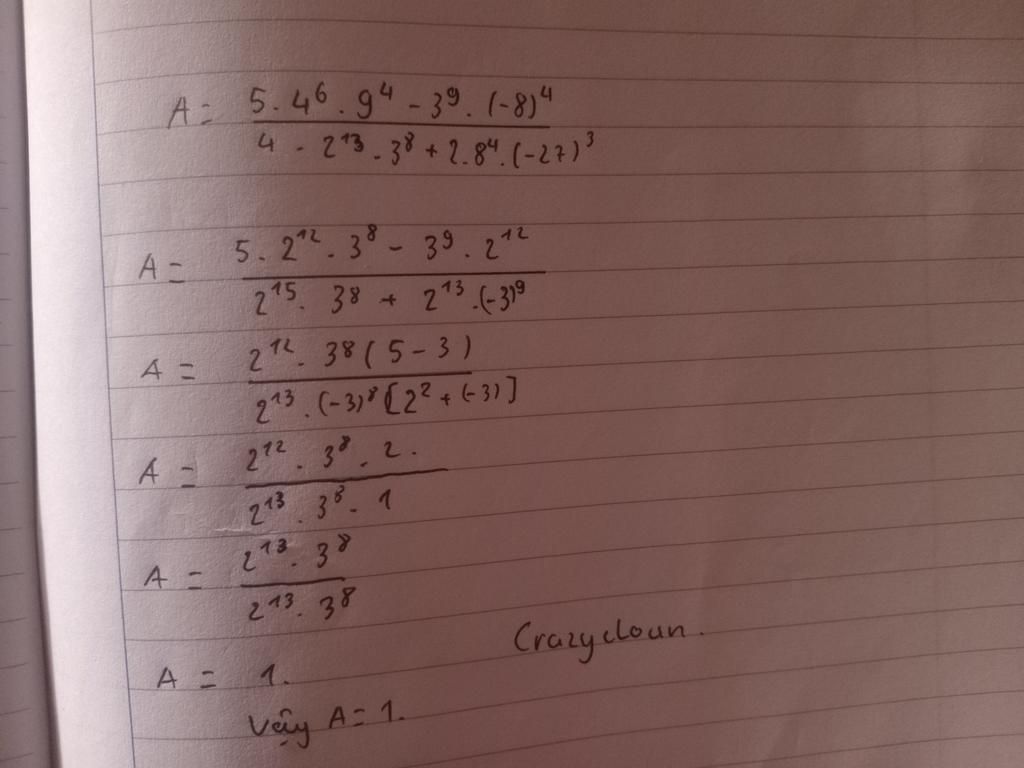 A = \frac{5 . 4^6 . 9^4 - 3^9 . (-8)^4}{4 . 2^{13} . 3^8 + 2 . 8^4 . (-27)^3}
A = \frac{5 . 2^{12} . 3^8 - 3^9 . 2^{12}}{2^{15} . 3^8 + 2^{13} . (-3)^9}
A = \frac{2^{12} . 3^8 (5 - 3)}{2^{13} . (-3)^8 [2^2 + (-3)]}
A = \frac{2^{12} . 3^8 . 2.}{2^{13} . 3^8 . 1}
A = \frac{2^{13} . 3^8}{2^{13} . 3^8}
Crazycloun.
A = 1.
Vậy A = 1.